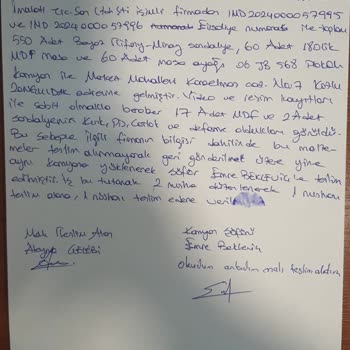 İnalat Tic. San. Ltd. Şti isimli firmadan IND2024000057995
ve IND 2024000057996 numaralı ile toplam
550 Adet Beyaz sandalye, 60 Adet 180lik
MDF masa ve 60 Adet masa ayağı 06 58 568 Plakalı
Kamyon ile Merkez Mahallesi Karaelmas cad. No:7 Kozlu
ZONGULDAK adresine gelmiştir. Video ve resim kayıtları
ile sabit olmakla beraber 17 Adet MDF ve 2 Adet
sandalyenin Kırık, Çatlak ve defome oldukları görüldü.
Bu sebeple ilgili firmanın bilgisi dahilinde bu malze-
meler teslim alınmayarak geri gönderilmek üzere yine
aynı kamyona yüklenerek şöför Emre teslim
edilmiştir. İş bu tutanak 2 nüsha düzenlenerek 1 nüshası
teslim alana, 1 nüshası teslim edene
Malı Teslim Alan
Kamyon ŞÖFÖRÜ
Emre
Okudum anladım malı teslim aldım